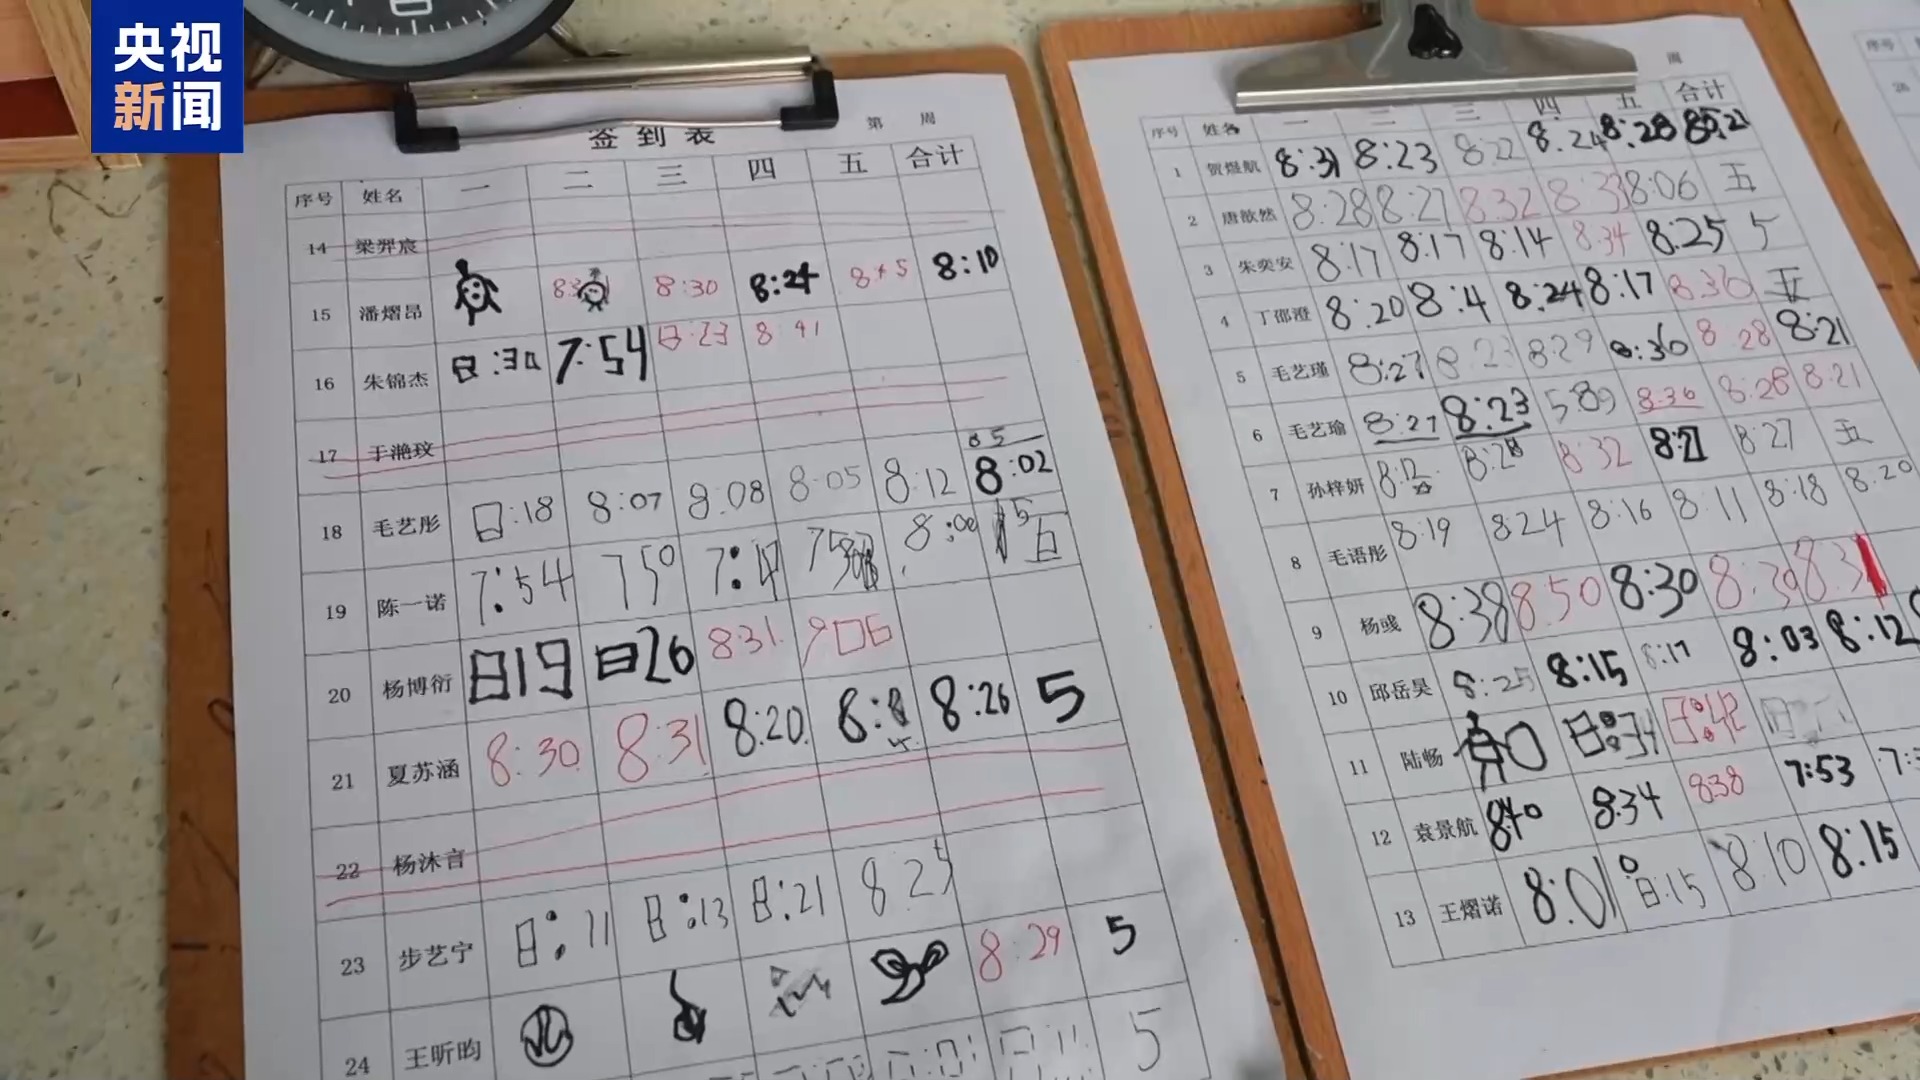 央视
新闻
签到表
第 周
序号 姓名 一 二 三 四 五 合计
14 梁羿宸
15 潘熠昂 8:30 8:24 8:45 8:10
16 朱锦杰 8:30 7:54 8:23 8 41
17 于滟玟
85
18 毛艺彤 8:18 8:07 8:08 8:05 8:12 8:02
19 陈一诺 7:54 750 8:00 15 五
20 杨博衍 819 826 8:31 906
21 夏苏涵 8:30 8:31 8:20 8:26 5
22 杨沐言
23 步艺宁 8:11 8:13 8:21 8:25
24 王昕昀 8:29 5
5
周
序号 姓名 一 二 三 四 五 合计
1 贺煜航 8:31 8:23 8:22 8:24 8:28
2 唐歆然 8:28 8:27 8:32 8:33 8:06 五
3 朱奕安 8:17 8:17 8:14 8:34 8:25 5
4 丁邵澄 8:20 8:4 8:24 8:17 8:36 五
5 毛艺瑾 8:27 8:23 8:29 8:36 8:28 8:21
6 毛艺瑜 8:27 8:23 5:89 8:36 8:28 8:21
7 孙梓妍 8:12 8:28 8:32 8:21 8:27 五
8 毛语彤 8:19 8:24 8:16 8:11 8:18 8:20
9 杨彧 8:38 8:50 8:30 8:39 8:31
10 邱岳昊 8:25 8:15 8:17 8:03 8:12
11 陆畅 8:34 8:42
12 袁景航 8:40 8:34 8:38 7:53
13 王熠诺 8:01 8:15 8:10 8:15
序号